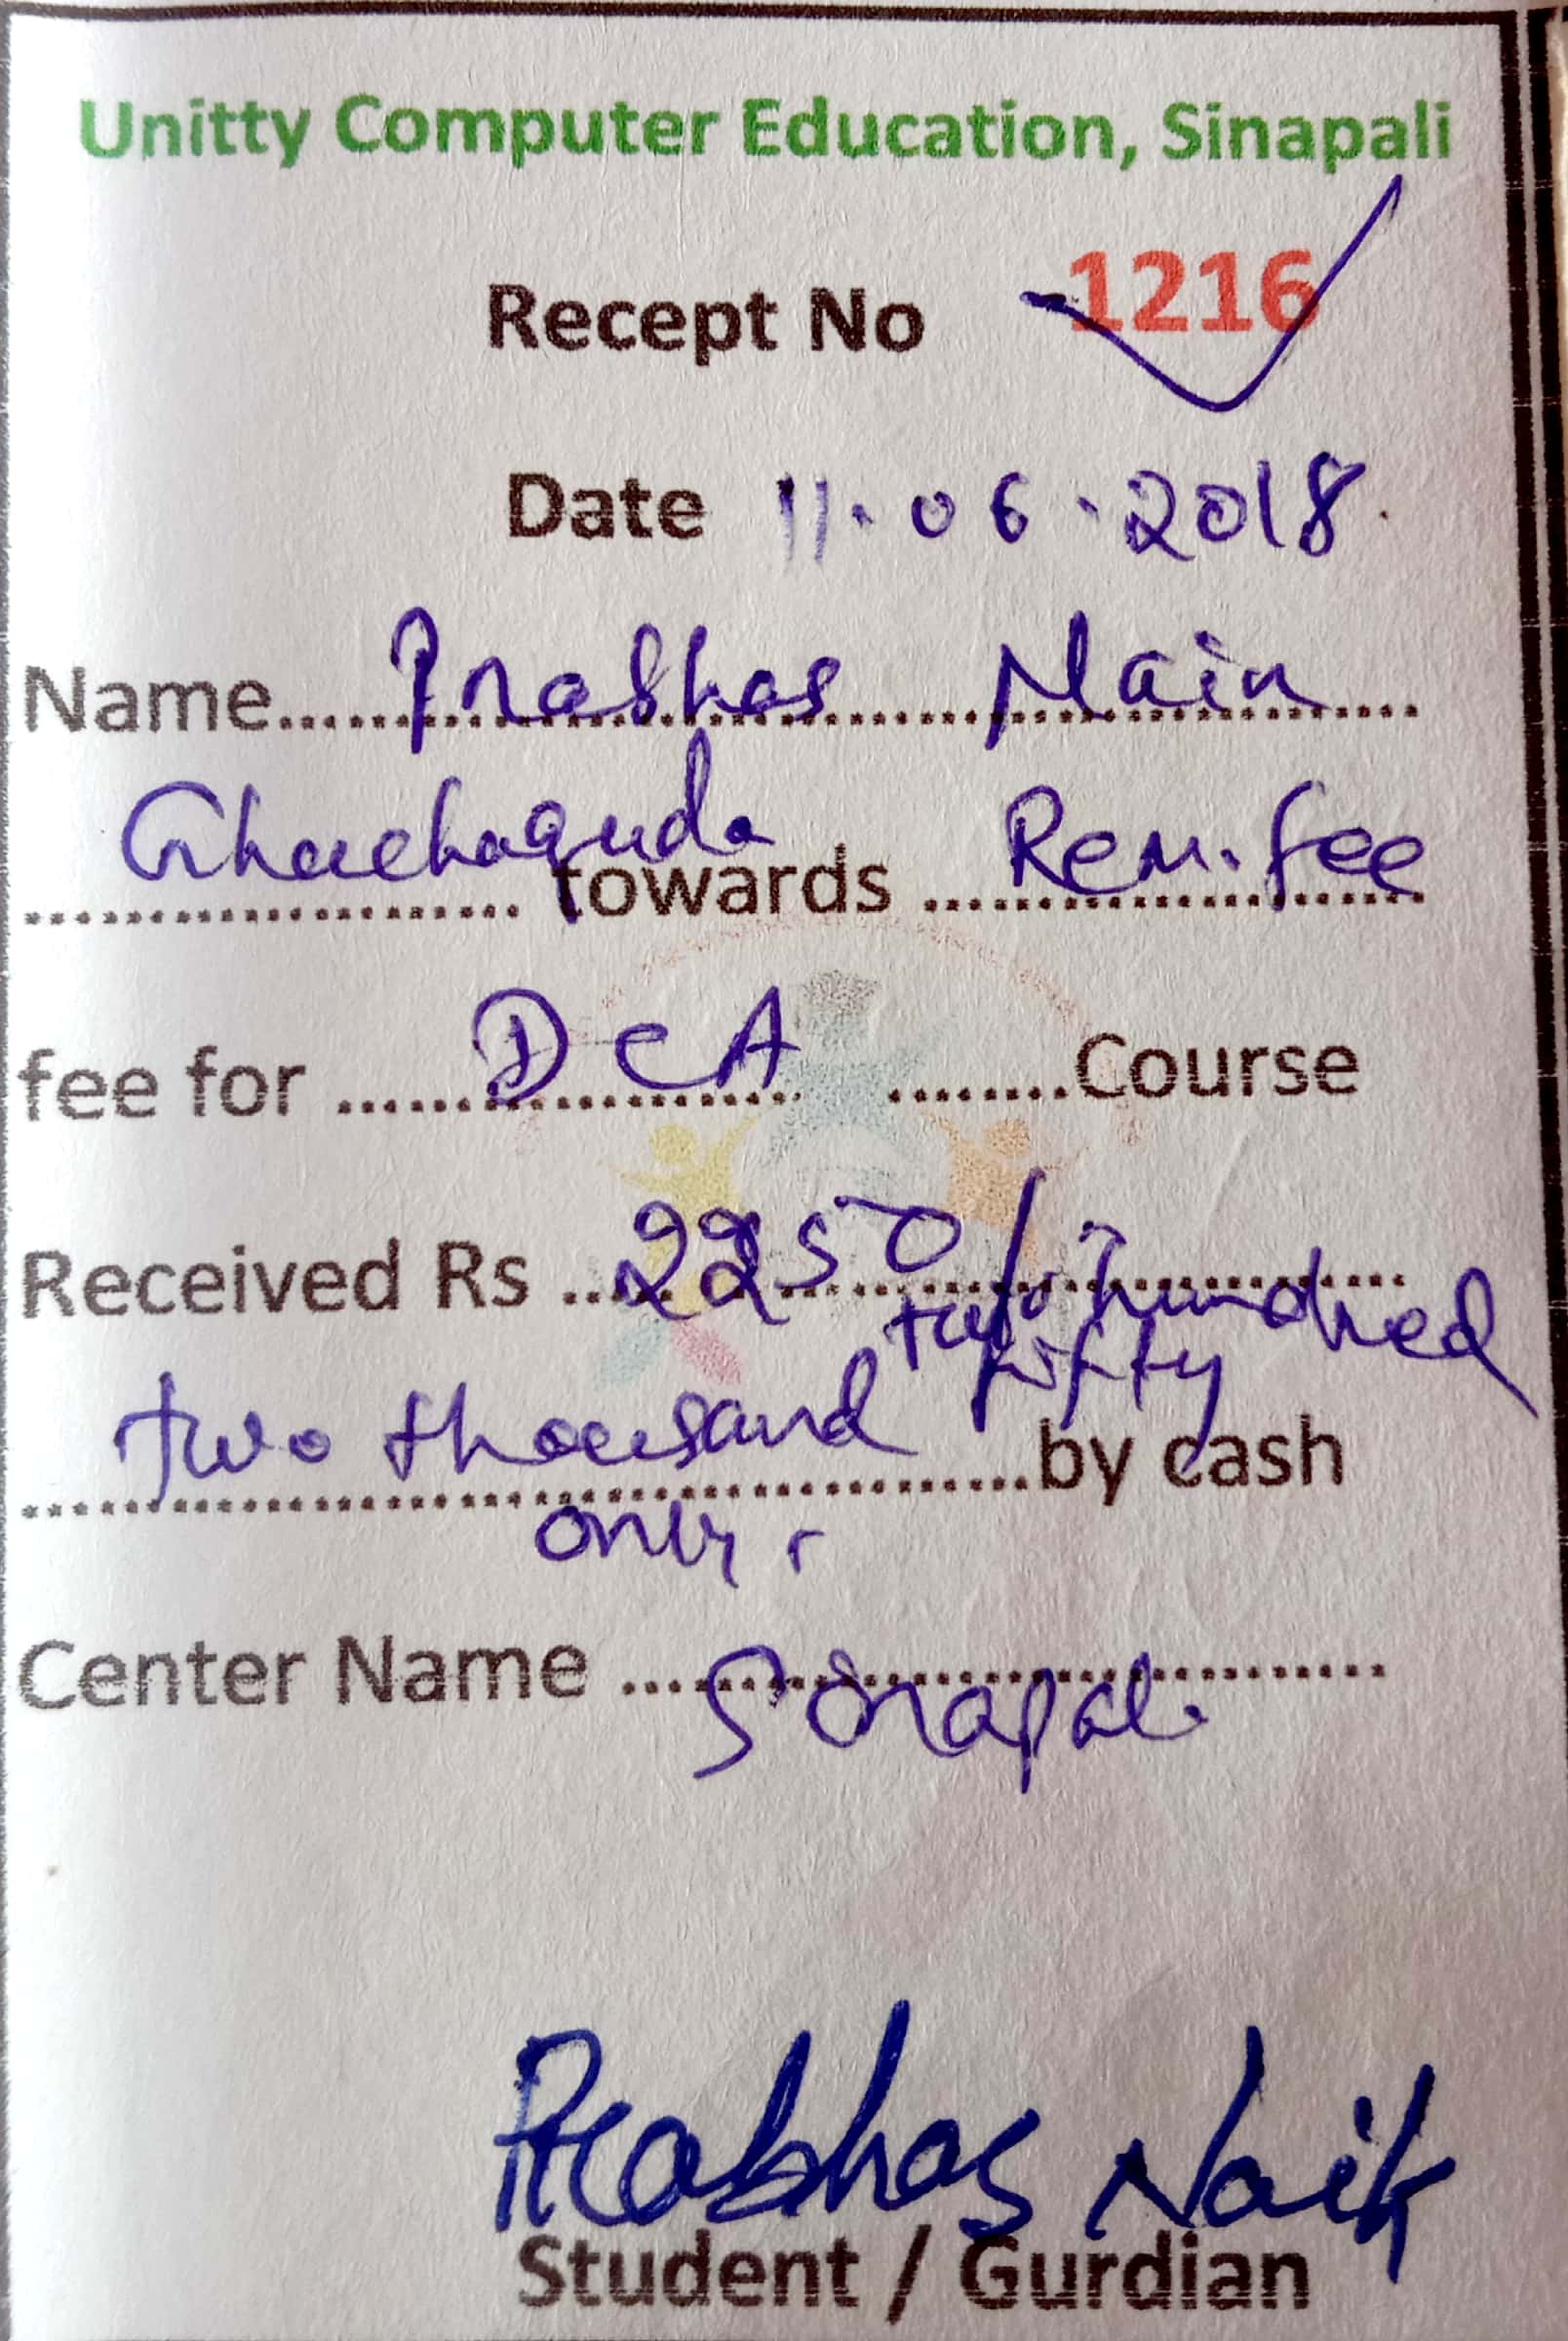 Unitty Computer Education, Sinapali
Recept No -1216
Date 11.06.2018.
Name.......Prabhas Naik.......
Ghachaguda towards ....Rem. fee
fee for ......DCA.........Course
Received Rs ...2250/-
two hundred
fifty
two thousand ........by cash
only.
Center Name ....Sinapali
Prabhas Naik
Student / Gurdian